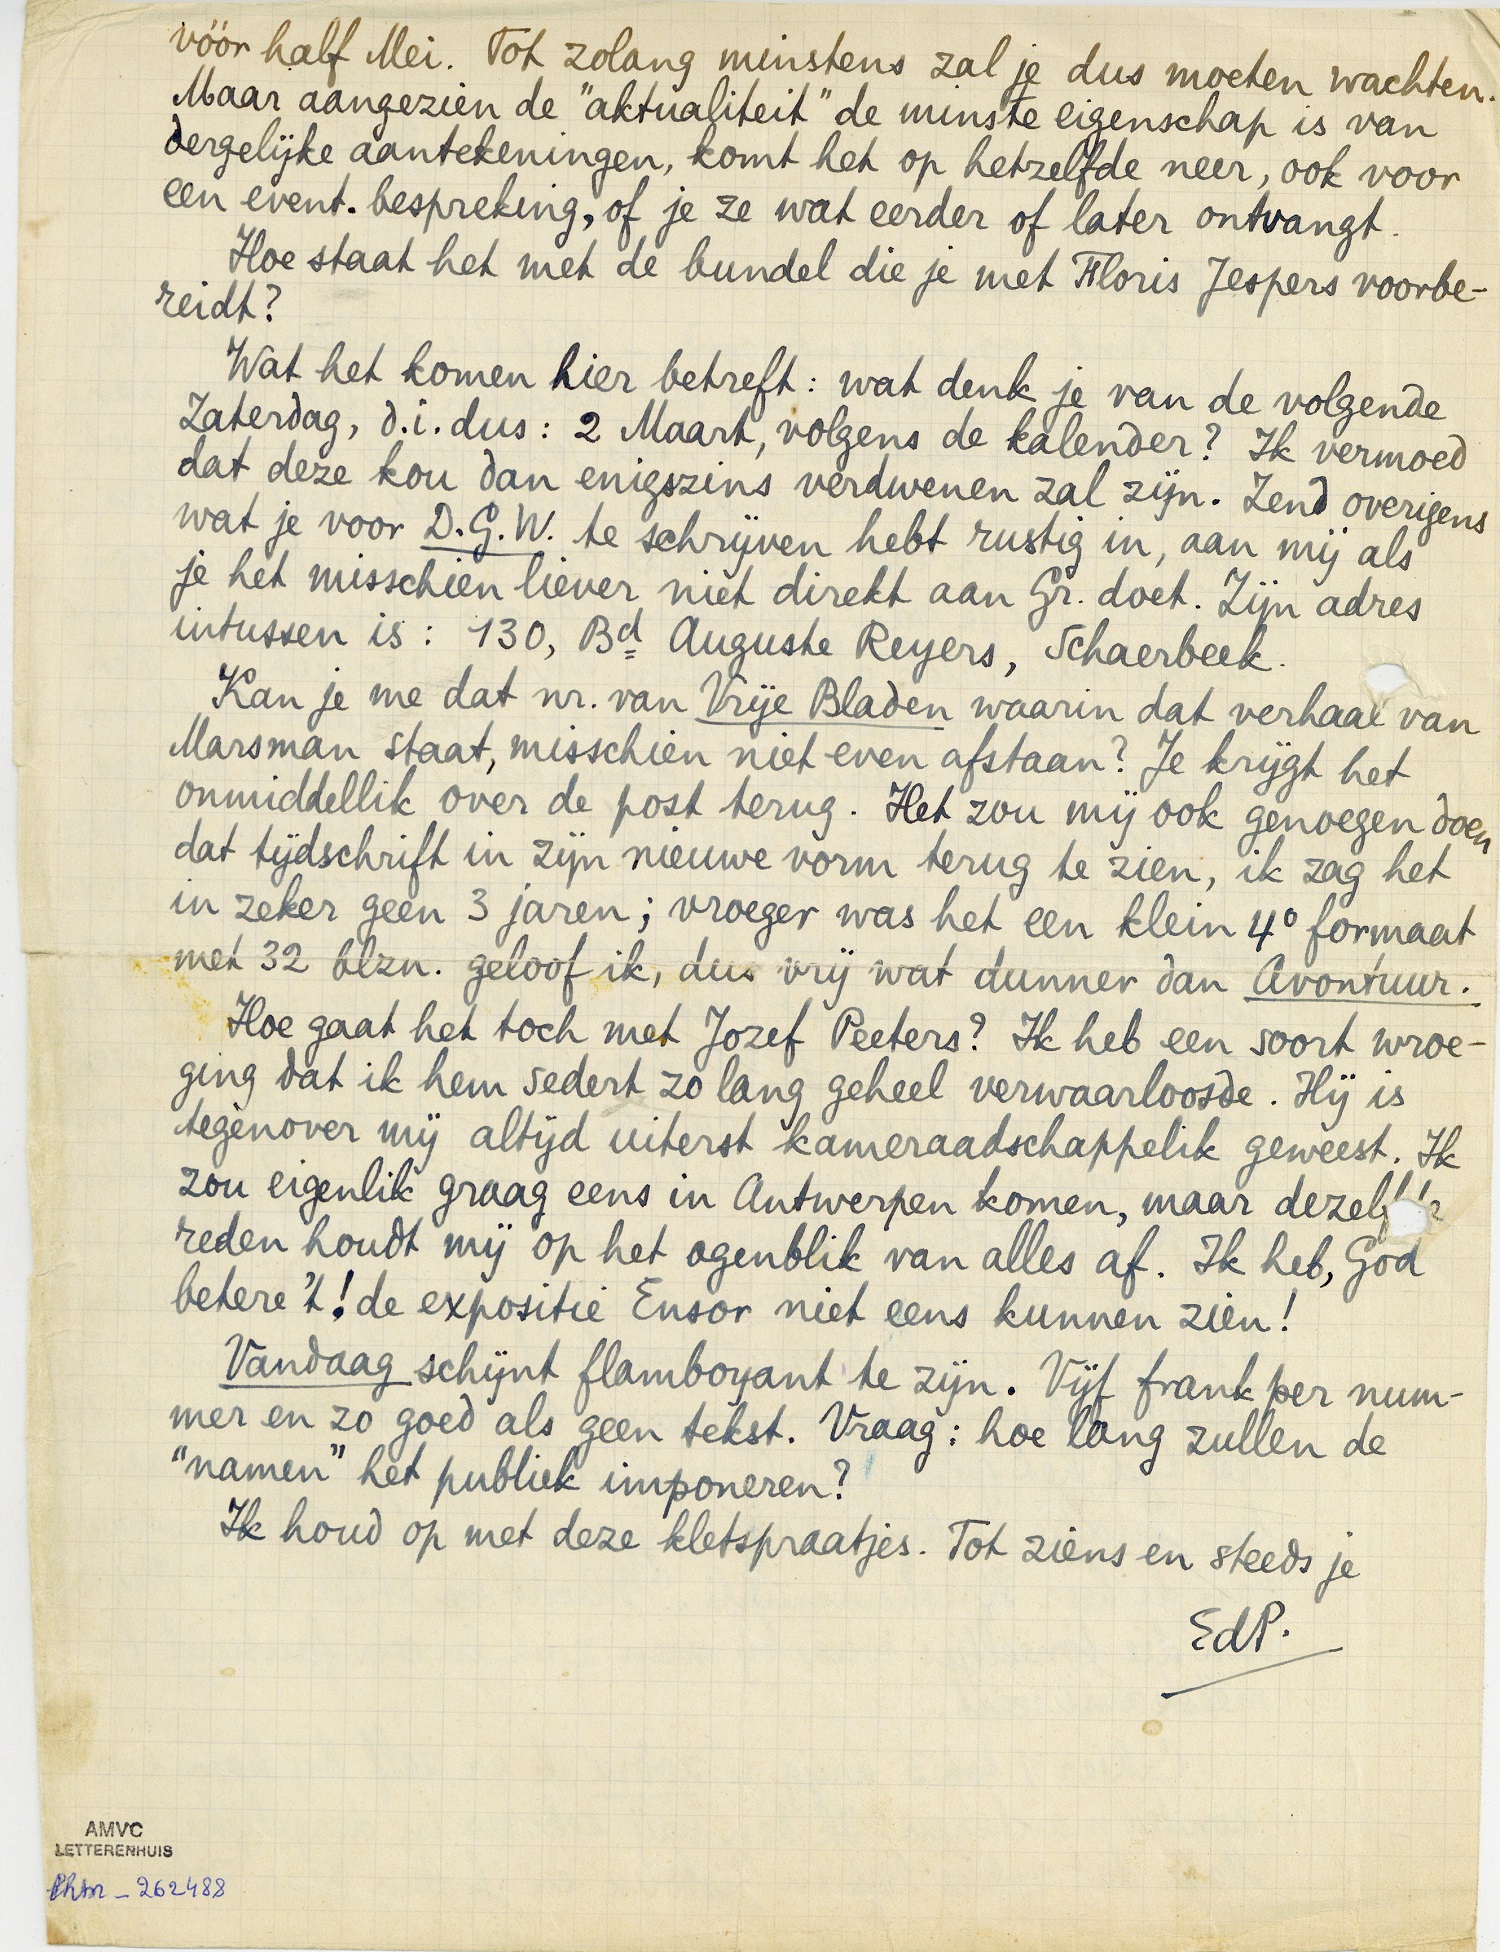 vóór half Mei. Tot zolang minstens zal je dus moeten wachten.
Maar aangezien de "aktualiteit" de minste eigenschap is van
dergelijke aantekeningen, komt het op hetzelfde neer, ook voor
een event. bespreking, of je ze wat eerder of later ontvangt.
Hoe staat het met de bundel die je met Floris Jespers voorbe-
reidt?
Wat het komen hier betreft: wat denk je van de volgende
Zaterdag, d.i. dus: 2 Maart, volgens de kalender? Ik vermoed
dat deze kou dan enigszins verdwenen zal zijn. Zend overigens
wat je voor D.G.W. te schrijven hebt rustig in, aan mij als
je het misschien liever niet direkt aan Gr. doet. Zijn adres
intussen is: 130, Bd Auguste Reyers, Schaerbeek.
Kan je me dat nr. van Vrije Bladen waarin dat verhaal van
Marsman staat, misschien niet even afstaan? Je krijgt het
onmiddellik over de post terug. Het zou mij ook genoegen doen
dat tijdschrift in zijn nieuwe vorm terug te zien, ik zag het
in zeker geen 3 jaren; vroeger was het een klein 4° formaat
met 32 blzn. geloof ik, dus vrij wat dunner dan Avontuur.
Hoe gaat het toch met Jozef Peeters? Ik heb een soort wroe-
ging dat ik hem sedert zo lang geheel verwaarloosde. Hij is
tegenover mij altijd uiterst kameraadschappelik geweest. Ik
zou eigenlik graag eens in Antwerpen komen, maar dezelfde
reden houdt mij op het ogenblik van alles af. Ik heb, God
betere 't! de expositie Ensor niet eens kunnen zien!
Vandaag schijnt flamboyant te zijn. Vijf frank per num-
mer en zo goed als geen tekst. Vraag: hoe lang zullen de
"namen" het publiek imponeren?
Ik houd op met deze kletspraatjes. Tot ziens en steeds je
EdP.
AMVC
LETTERENHUIS
262488